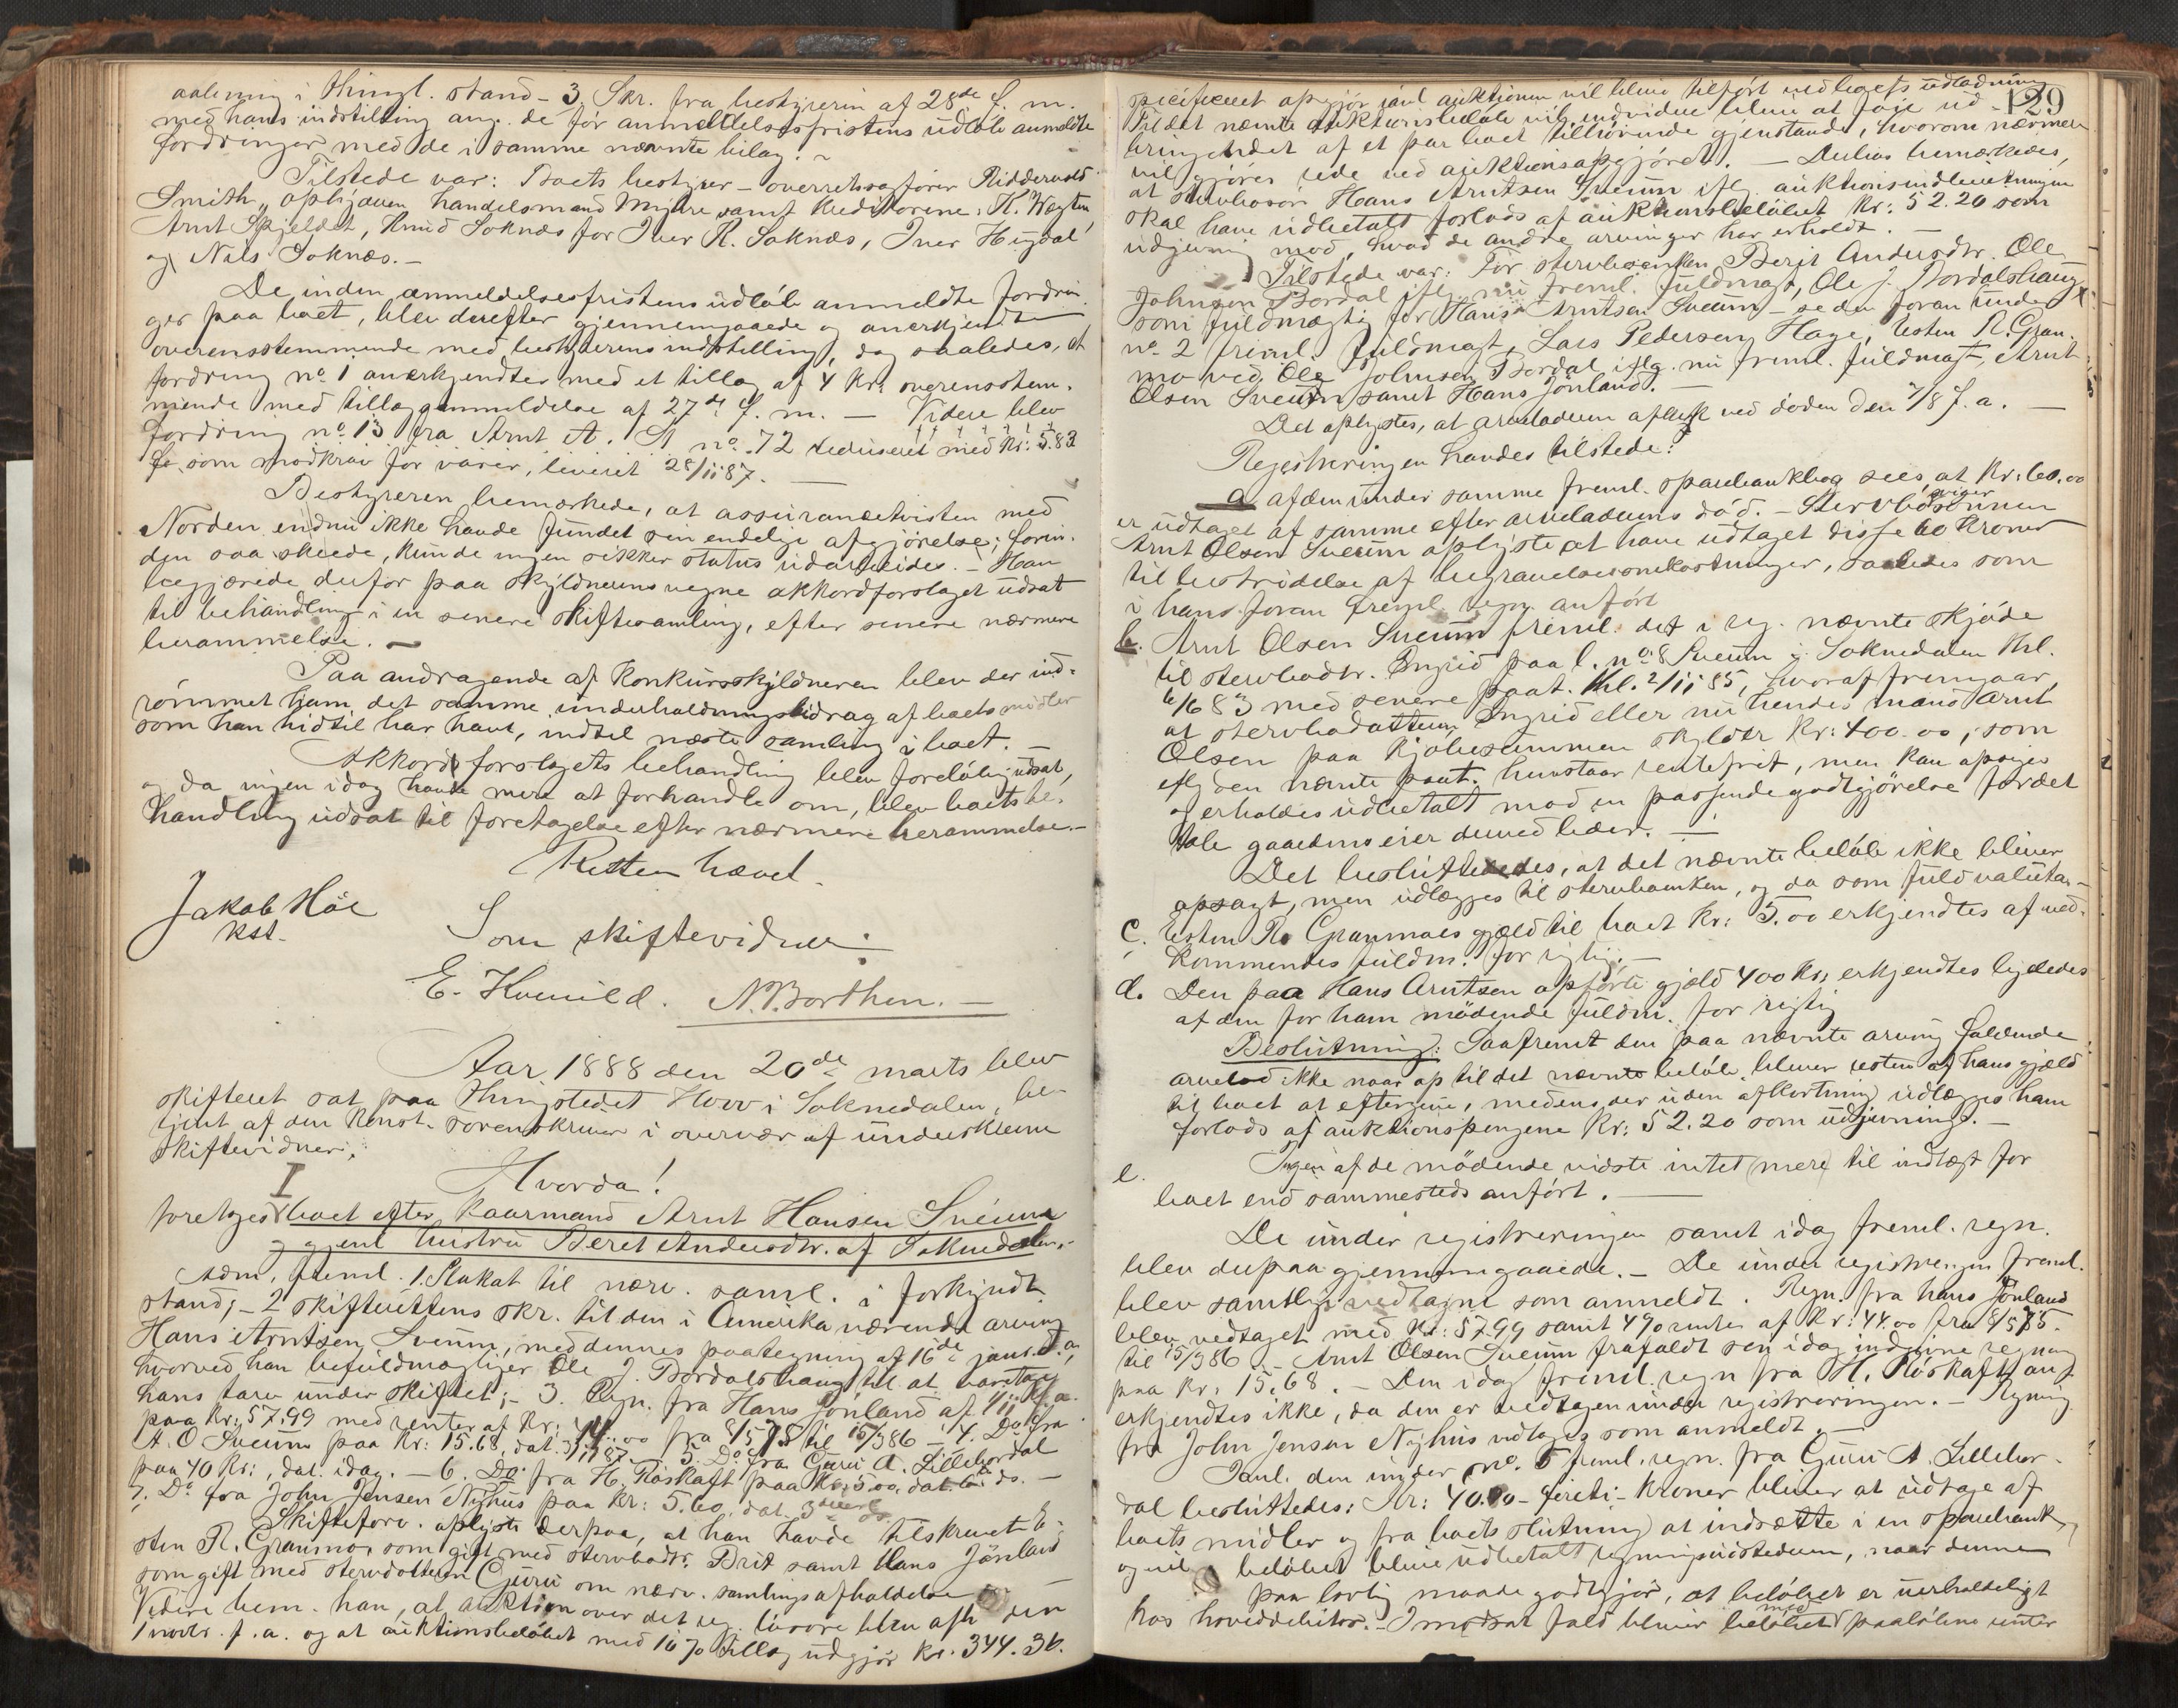 aalening i Thingl. stand - 3 Skr. fra bestyreren af 28de f. m.
med hans indstilling ang. de før anmeldelsesfristens udløb anmeldte
fordringer med de i samme nævnte bilag. -
Tilstede var: Boets bestyrer - overretssagfører Riddervold
Smith, ophjaven handelsmand Myhre samt kreditorerne: K. Wægten,
Arnt Skjeldet, Knud Soknæs for Iver R. Soknæs, Iver Hugdal
og Nils Soknæs. -
De inden anmeldelsesfristens udløb anmeldte fordrin-
ger paa boet, blev derefter gjennemgaaede og anerkjendte
overensstemmende med bestyrerens indstilling, dog saaledes, at
fordring no 1 anerkjendtes med et tillæg af 4 kr. overensstem-
mende med tillægsanmeldelse af 27de f. m. - Videre blev
fordring no 13 fra Arnt A. St no. 72 reduseret med Kr: 5.83
som modkrav for varer, leveret 28/11 87. -
Bestyreren bemærkede, at assurancetvisten med
Norden endnu ikke havde fundet sin endelige afgjørelse; forin-
den saa skeede, kunde ingen sikker status udarbeides. - Han
begjærede derfor paa skyldnerens vegne akkordforslaget udsat
til behandling i en senere skiftesamling, efter senere nærmere
berammelse. -
Paa andragende af konkursskyldneren blev der ind-
rømmet ham det samme underholdningsbidrag af boets midler
som han hidtil har havt, indtil næste samling i boet. -
Akkordforslagets behandling blev foreløbig udsat,
og da ingen idag havde mere at forhandle om, blev boets be-
handling udsat til foretagelse efter nærmere berammelse. -
Retten hævet.
Jakob Høe
kst.
Som skiftevidner:
E. Hvenild. N. Borthen. -
Aar 1888 den 20de marts blev
skifteret sat paa Thingstedet Hovv i Soknedalen, be-
tjent af den konst. sorenskriver i overvær af underskrevne
skiftevidner.
Hvorda!
I
foretoges boet efter kaarmand Arnt Hansen Sveum
og gjenl. hustru Beret Andersdtr. af Soknedalen. -
Adm. freml. 1. Plakat til nærv. saml. i forkyndt
stand; - 2 skifterettens skr. til den i Amerika værende arving
Hans Arntsen Sveum, med dennes paategning af 16de jan. d. a.,
hvorved han befuldmægtiger Ole J. Bordalshaug til at varetage
hans tarv under skiftet; - 3. Regn. fra Hans Jónland af 1/11 f. a.
paa Kr: 57.99 med renter af Kr: 44.00 fra 8/5 75 til 15/3 86 - 4. Do fra
A. O Sveum paa Kr: 15.68, dat. 87. 5. Do. fra Guru A. Lillebordal
paa 40 Kr:, dat. idag. - 6. Do fra H. Røskaft paa Kr. 5.00, dat. ds. -
7. Do fra John Jensen Nyhus paa Kr: 5.60, dat. 3
Skifteforv. oplyste derpaa, at han havde tilskrevet E-
sten R. Granmo, som gift med stervbodtr. Brit samt Hans Jónland
som gift med stervdatteren Guru om nærv. samlings afholdelse
Videre bem. han, at auktion over det reg. løsøre blev afh. den
1 novbr. f. a. og at auktionsbeløbet med 10 % tillæg udgjør kr. 344.36.
129
specificeret opgjør saml. auktionen vil blive tilført ved bogets udladning
Til det nævnte auktionsbeløb vil endvidere blive at føie ud-
bringendet af et par boet tilhørende gjenstande, hvorom nærmere
vil gjøres rede ved auktionsopgjøret. - Derhos bemærkedes,
at stervbosøn Hans Arntsen Sveum iflg. auktionsindberetningen
skal have udbetalt forlods af auktionsbeløbet Kr: 52.20 som
udjevning mod, hvad de andre arvinger har erholdt. -
Tilstede var: For stervboenken Berit Andersdtr. Ole
Johnsen Bordal iflg. nu freml. fuldmagt, Ole J. Bordalshaug
som fuldmægtig for Hans Arntsen Sveum - se den foran under
no. 2 freml. fuldmagt, Lars Pedersen Hage, Esten R. Gran-
mo ved Ole Johnsen Bordal iflg. nu freml. fuldmagt, Arnt
Olsen Sveum samt Hans Jónland. -
Det oplystes, at arveladeren afgik ved døden den 7/8 f. a. -
Registreringen havdes tilstede:
a. af den under samme freml. sparebankbog sees, at Kr: 60.00
er udtaget af samme efter arveladerens død. - Stervbosvigersønnen
Arnt Olsen Sveum oplyste at have udtaget disse 60 kroner
til bestridelse af begravelsesomkostninger, saaledes som
i hans foran freml. regn. anført
b. Arnt Olsen Sveum freml. det i reg. nævnte skjøde
til stervbodtr. Ingrid paa l. no. 8 Sveum i Soknedalen thl.
6/6 83 med senere paat. thl. 2/11 85, hvoraf fremgaar,
at stervbodatteren Ingrid eller nu hendes mand Arnt
Olsen paa kjøbesummen skylder Kr: 400.00, som
iflg den nævnte paat. henstaar rentefrit, men kan opsiges
og erholdes udbetalt mod en passende godtgjørelse for det
tab gaardens eier derved lider. -
Det besluttedes, at det nævnte beløb ikke bliver
opsagt, men udlægges til stervboenken, og da som fuld valuta. -
c. Esten R. Granmoes gjæld til boet Kr: 5.00 erkjendtes af ved-
kommendes fuldm. for rigtig. -
d. Den paa Hans Arntsen opførte gjæld 400 Kr. erkjendtes ligeledes
af den for ham mødende fuldm. for rigtig
Beslutning: Saafremt den paa nævnte arving faldende
arvelod ikke naar op til det nævnte beløb, bliver resten af hans gjæld
til boet at eftergive, medens der uden afkortning udlægges ham
forlods af auktionspengene Kr: 52.20 som udjevning. -
e. Ingen af de mødende vidste intet mere til indtægt for
boet end sammesteds anført. -
De under registreringen samt idag freml. regn.
blev derpaa gjennemgaaede. - De under registreringen freml.
blev samtlige vedtagne som anmeldt. Regn. fra Hans Jónland
blev vedtaget med Kr: 57.99 samt 4% renter af Kr: 44.00 fra 8/5 75.
til 15/3 86. - Arnt Olsen Sveum frafaldt sin idag indgivne regning
paa Kr: 15.68. - Den idag freml. regn fra H. Røskaft an-
erkjendtes ikke, da den er vedtagen under registreringen. - Regning
fra John Jensen Nyhus vedtoges som anmeldt. -
Saml. den under no. 5 freml. regn. fra Guru A. Lillebor-
dal besluttedes: Kr: 40.00 - fireti - kroner bliver at udtage af
boets midler og fra boets slutning at indsætte i en sparebank,
og vil beløbet blive udbetalt regningsudstederen, naar denne
paa lovlig maade godtgjør, at beløbet er uerholdeligt
hos hoveddebitor. - I modsat fald bliver beløbet med paaløbne renter